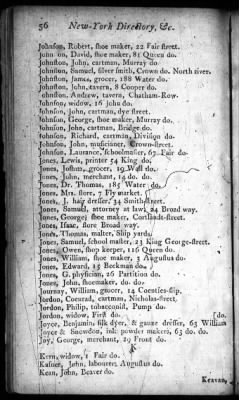 56 New-York Directory, &c.
Johnson, Robert, shoe maker, 22 Fair street.
John on, David, shoe maker, 81 Queen do.
Johnston, John, cartman, Murray do.
Johnston, Samuel, silver smith, Crown do. North river.
Johnston, James, grocer, 188 Water do.
Johnston, John, tavern, 8 Cooper do.
Johnston, Andrew, tavern, Chatham-Row.
Johnson, widow, 16 John do.
Johnson, John, cartman, dye street.
Johnson, George, shoe maker, Murray do.
Johnson, John, cartman, Bridge do.
Johnson, Richard, cartman, Division do.
Johnson, John, musicioner, Crown-street.
Johnson, Laurance, schoolmaster, 67 Fair do.
Jones, Lewis, printer 54 King do.
Jones, Joshua, grocer, 19 Wall do.
Jones, John, merchant, 14 do. do.
Jones, Dr. Thomas, 185 Water, do.
Jones, Mrs. store, 7 Fly market.
Jones, J. hair dresser, 34 Smith-street.
Jones, Samuel, attorney at law, 24 Broad way.
Jones, George, shoe maker, Cortlandt-street.
Jones, Isaac, store Broad way.
Jones, Thomas, malster, Slip yards.
Jones, Samuel, school master, 23 King George-street.
Jones, Owen, shop keeper, 126 Queen do.
Jones, William, shoe maker, 3 Augustus do
Jones, Edward, 15 Beekman do.
Jones, G. physician, 26 Partition do.
Jones, John, shoemaker, do. do.
Journay, William, grocer, 14 Coenties-slip.
Jordon, Coenrad, cartman, Nicholas-street.
Jordon, Philip, tobacconist, Pump do.
Jordon, widow, First do. [do.
Joyce, Benjamin, silk dyer, & gauze dresser, 63 William
Joyce & Snowden, ink powder makers, 63 do. do.
Joy, George, merchant, 29 Front do.
K
Kern, widow, 1 Fair do.
Kaiser, John, labourer, Augustus do.
Kean, John, Beaver do.
Keavan,